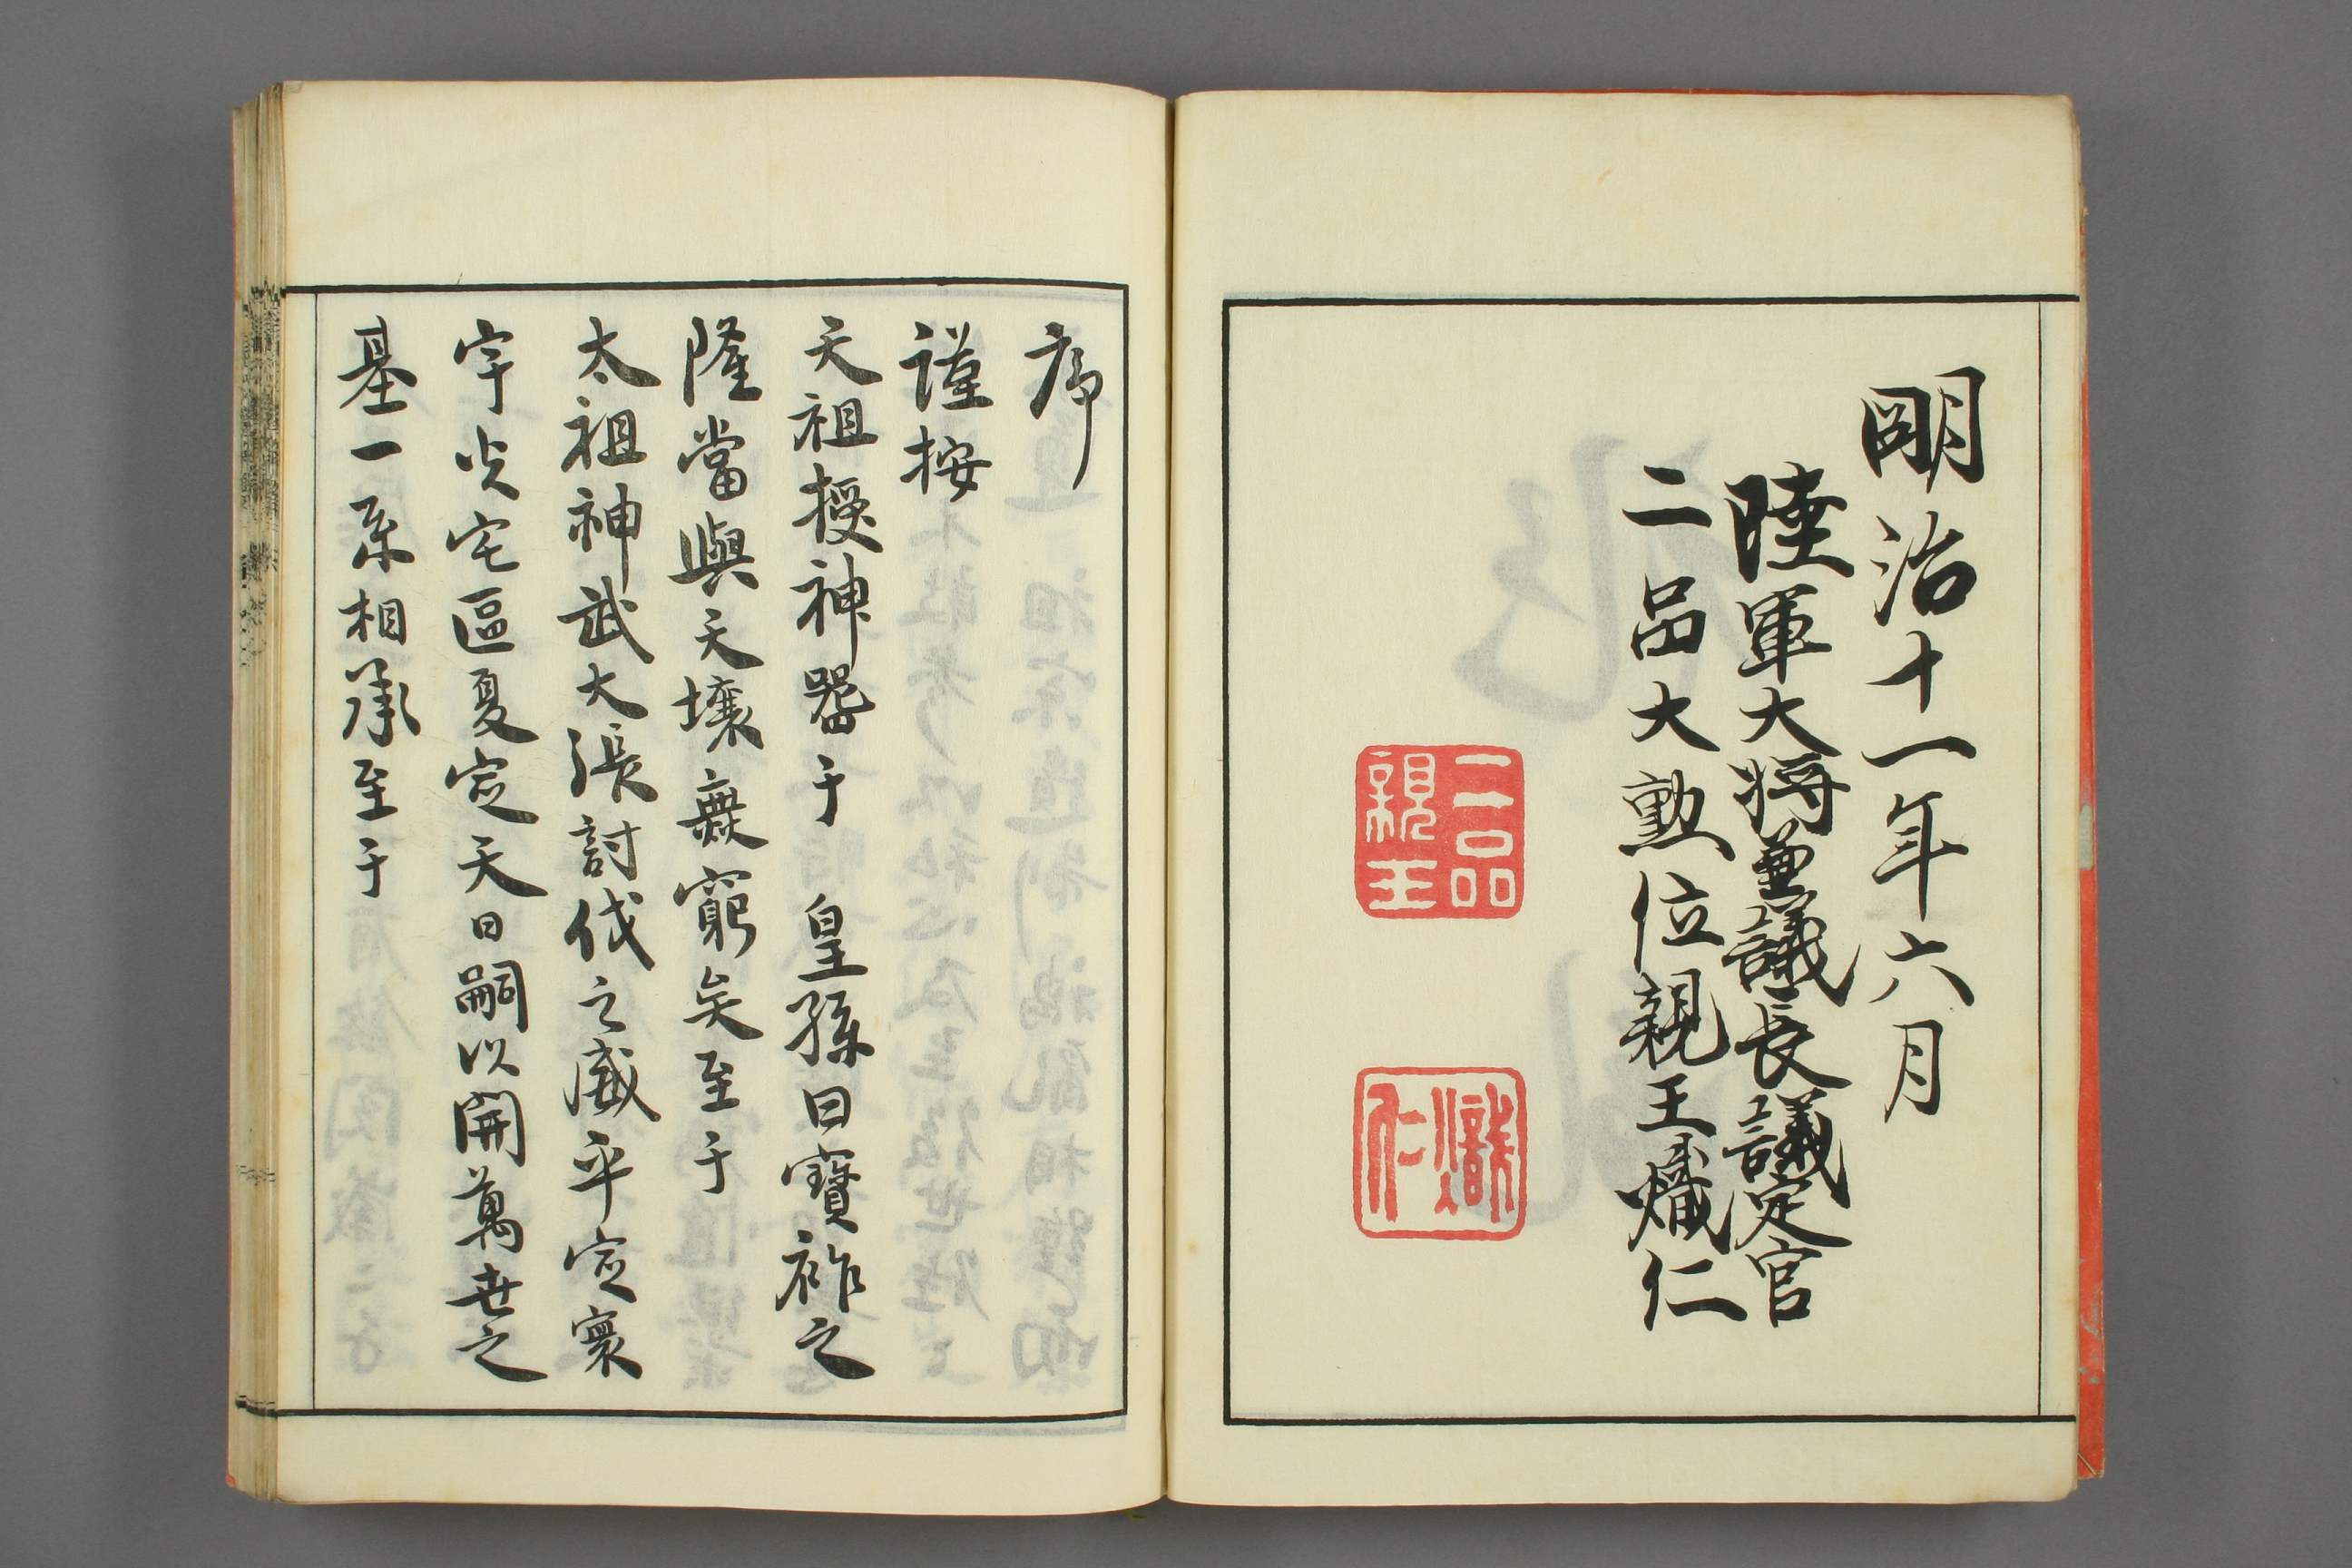 明治十一年六月
陸軍大将兼議長議定官
二品大勲位親王熾仁
二品
親王
熾
仁
序
謹按
天祖授神器于 皇孫曰寶祚之
隆當與天壤無窮矣至于
太祖神武大張討伐之威平定寰
宇奠宅區夏定天日嗣以開萬世之
基一系相承至于